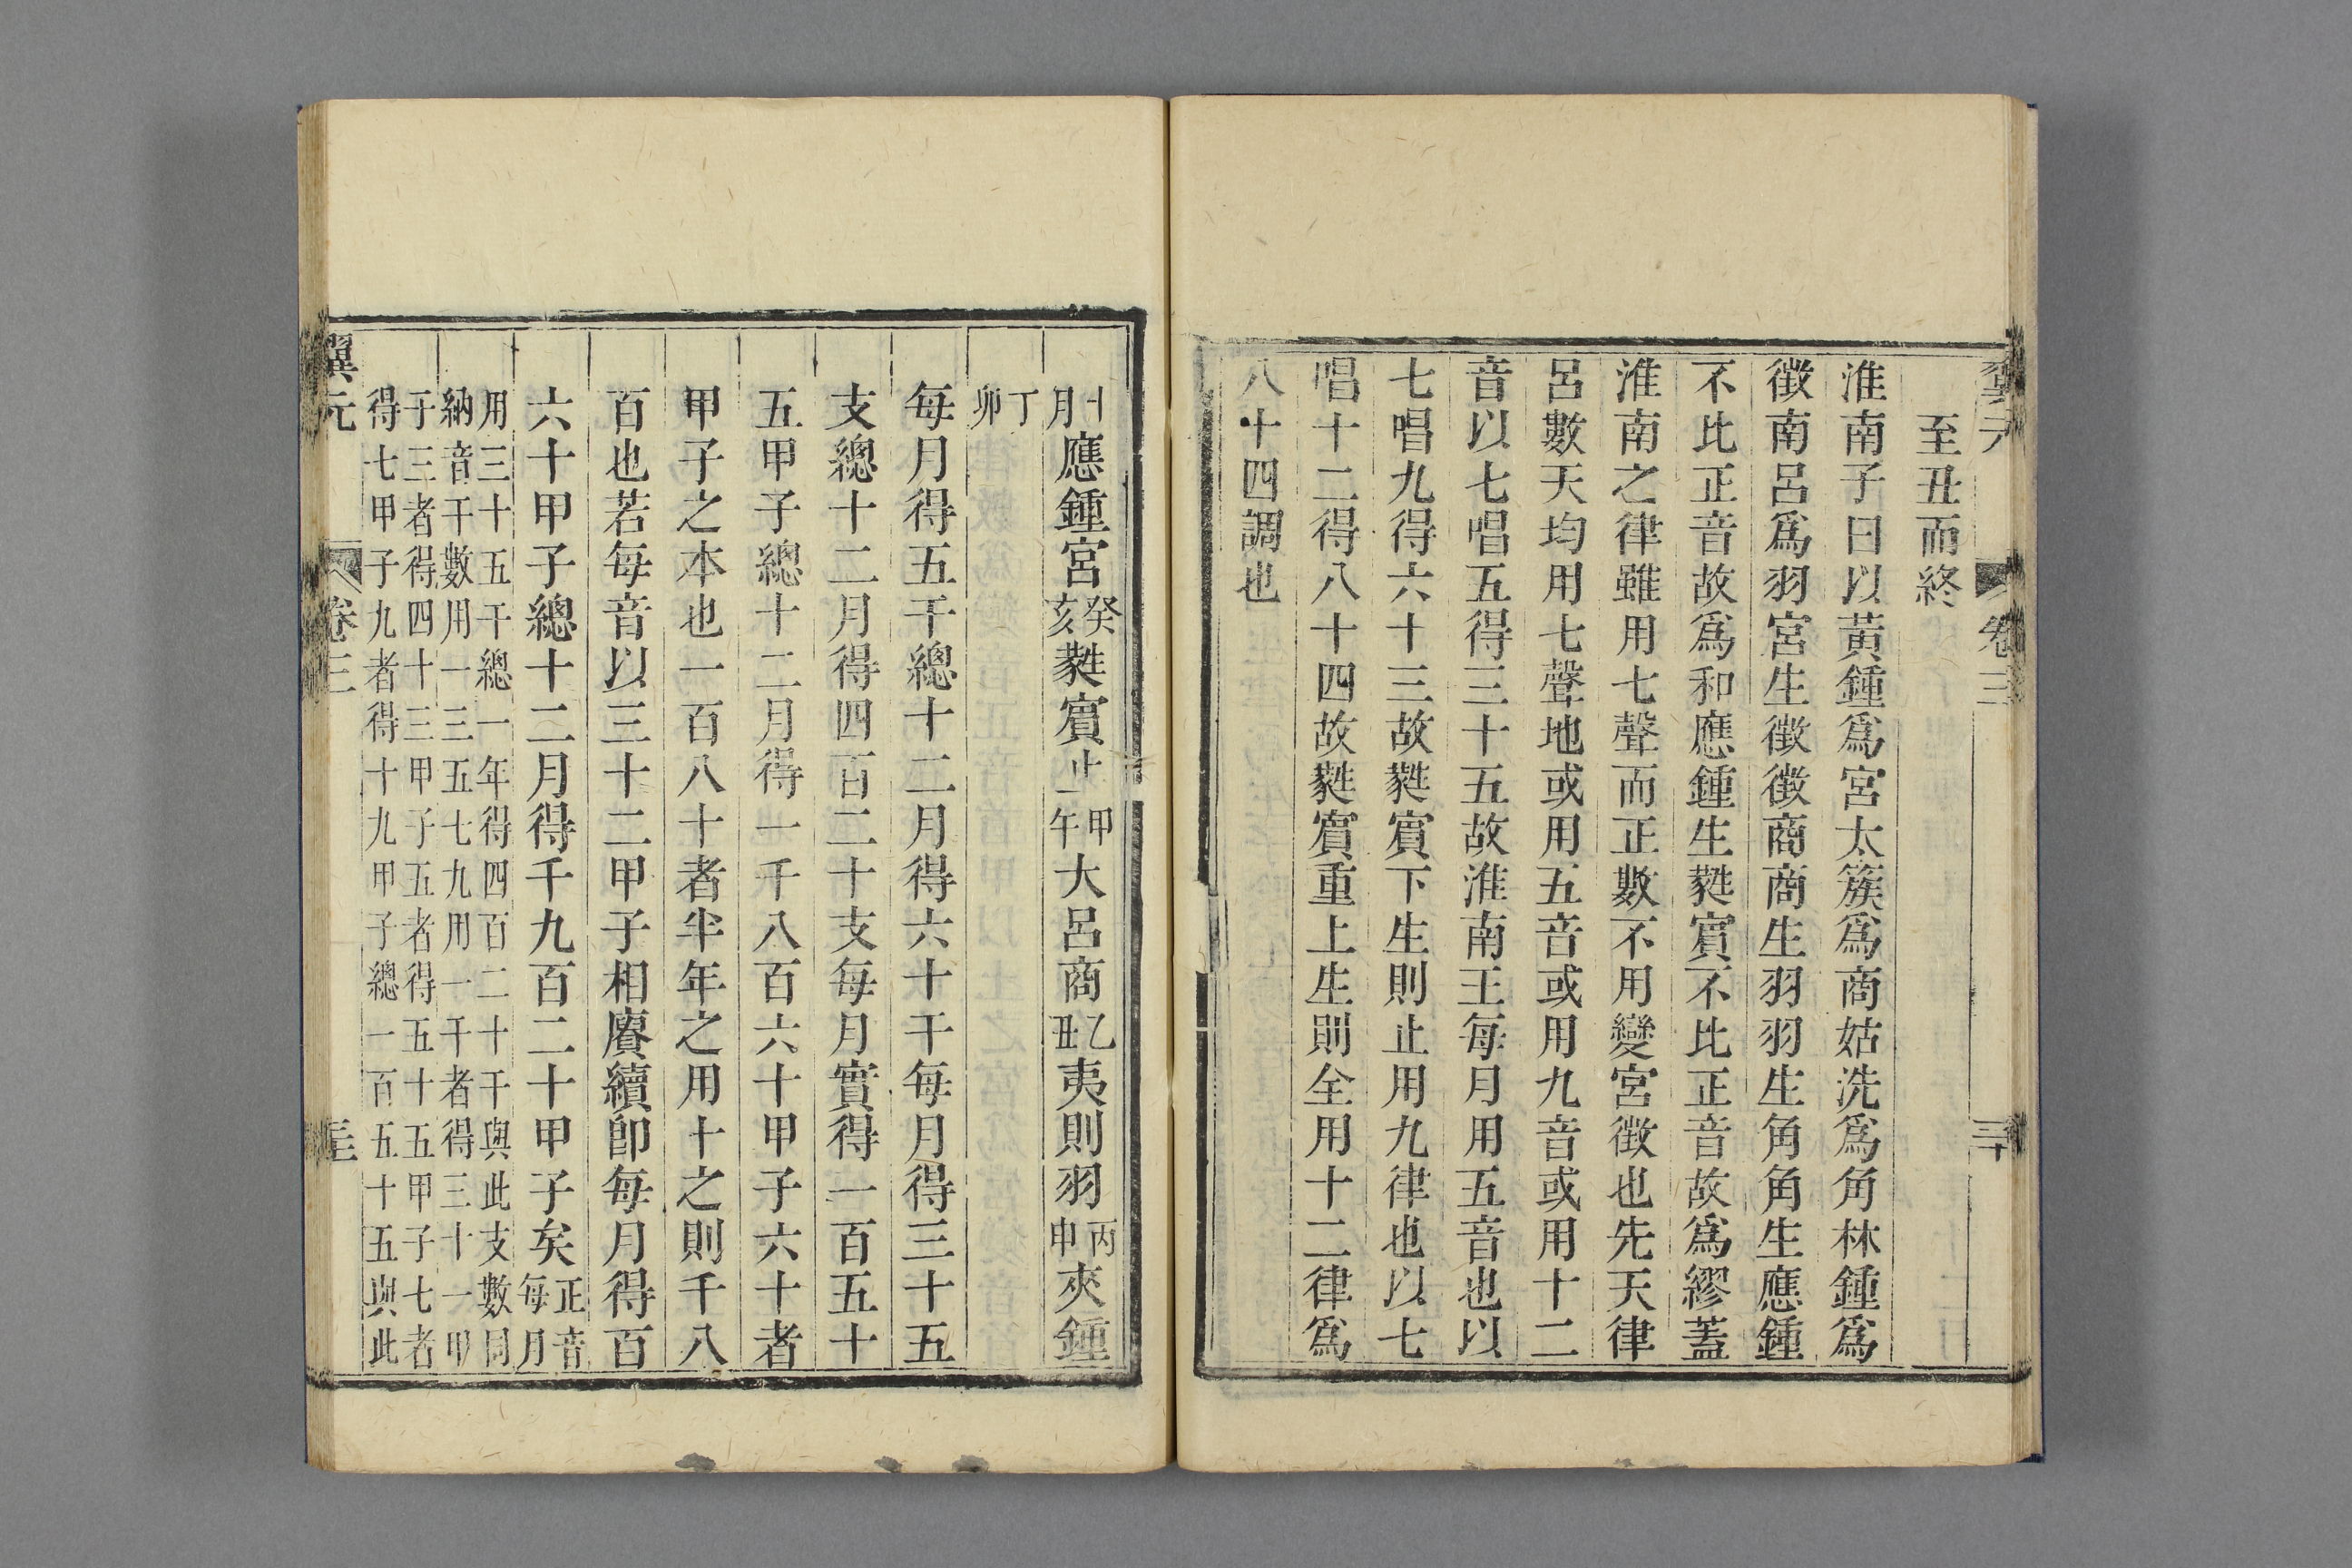 卷三 三十
至丑而終
淮南子曰以黃鍾爲宮太簇爲商姑洗爲角林鍾爲
徵南呂爲羽宮生徵徵商商生羽羽生角角生應鍾
不比正音故爲和應鍾生蕤賓不比正音故爲繆蓋
淮南之律雖用七聲而正數不用變宮徵也先天律
呂數天均用七聲地或用五音或用九音或用十二
音以七唱五得三十五故淮南王每月用五音也以
七唱九得六十三故蕤賓下生則止用九律也以七
唱十二得八十四故蕤賓重上生則全用十二律爲
八十四調也
月應鍾宮癸亥蕤賓止甲午大呂商乙丑夷則羽丙申夾鍾
丁卯
每月得五干總十二月得六十干每月得三十五
支總十二月得四百二十支每月實得一百五十
五甲子總十二月得一千八百六十甲子六十者
甲子之本也一百八十者半年之用十之則千八
百也若每音以三十二甲子相賡續卽每月得百
六十甲子總十二月得千九百二十甲子矣正音每月
用三十五干總一年得四百二十干與此支數同
納音干數用一三五七九用一干者得三十一甲
子三者得四十三甲子五者得五十五甲子七者
得七甲子九者得十九甲子總一百五十五與此
翼元 卷三